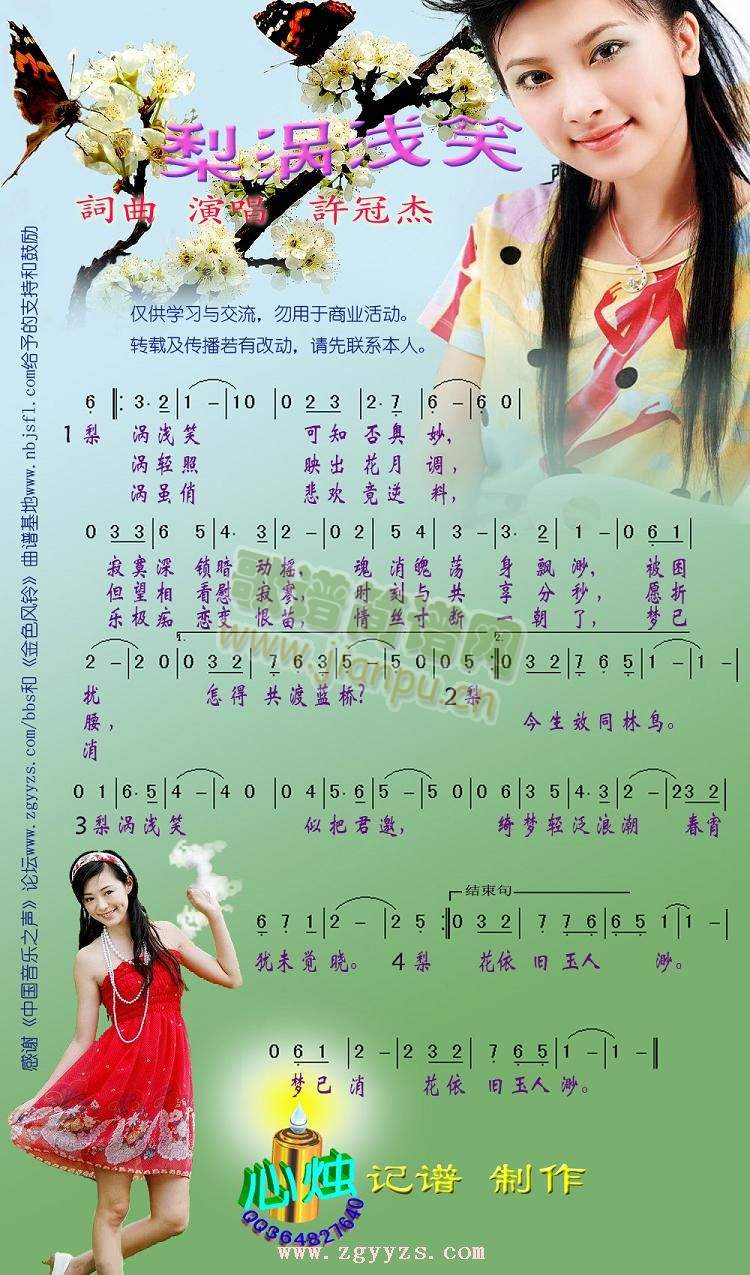 梨涡浅笑
詞曲 演唱 許冠杰
仅供学习与交流，勿用于商业活动。
转载及传播若有改动，请先联系本人。
6 ‖: 3· 2 | 1 － | 1 0 | 0 2 3 | 2· 7 | 6 － | 6 0 |
1梨 涡浅笑 可知 否奥 妙，
涡轻照 映出 花月 调，
涡虽俏 悲欢 竟逆 料，
0 3 3 | 6 5 | 4· 3 | 2 － | 0 2 | 5 4 | 3 － | 3· 2 | 1 － | 0 6 1 |
寂寞深 锁暗 动摇， 魂 消魄 荡 身 飘渺， 被困
但望相 看慰 寂寥， 时 刻与 共 享 分秒， 愿折
乐极痴 恋变 恨苗， 情 丝寸 断 一 朝了， 梦已
1. 2.
2 － | 2 0 | 0 3 2 | 7 6 3 | 5 － | 5 0 | 0 5 :‖ 0 3 2 | 7 6 5 | 1 － | 1 － |
扰 怎得 共渡蓝桥？ 2梨
腰， 今生效同林鸟。
消
0 1 | 6· 5 | 4 － | 4 0 | 0 4 | 5· 6 | 5 － | 5 0 | 0 6 | 3 5 | 4· 3 | 2 － | 2 3 2 |
3梨涡浅笑 似把君邀， 绮梦轻泛浪潮 春宵
结束句
6 7 1 | 2 － | 2 5 :‖ 0 3 2 | 7 7 6 | 6 5 | 1 － | 1 － |
犹未觉晓。 4梨 花依 旧玉人 渺。
0 6 1 | 2 － | 2 3 2 | 7 6 5 | 1 － | 1 － ‖
梦已 消 花依 旧玉人 渺。
感谢《中国音乐之声》论坛www.zgyyzs.com/bbs和《金色风铃》曲谱基地www.nbjsfl.com给予的支持和鼓励
歌谱简谱网
www.jianpu.cn
心烛 记谱 制作
QQ364827640
www.zgyyzs.com